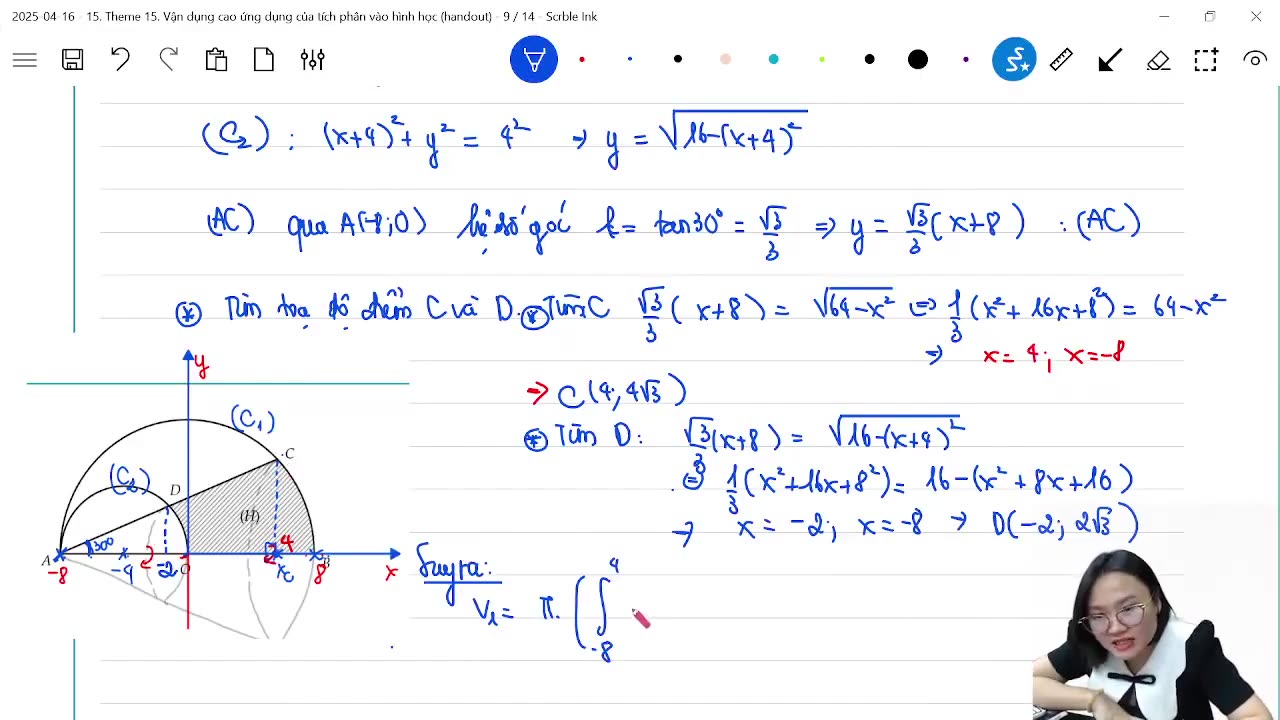 2025-04-16 - 15. Theme 15. Vận dụng cao ứng dụng của tích phân vào hình học (handout) - 9 / 14 - Scrble Ink
(C₂) : (x+4)² + y² = 4² → y = √(16-(x+4)²)
(AC) qua A(-8;0) hệ số góc k = tan30° = √3/3 ⇒ y = √3/3 (x+8) : (AC)
* Tìm toạ độ điểm C và D. * Tìm C √3/3 (x+8) = √(64-x²) ⇔ 1/3 (x²+16x+8²) = 64-x²
→ x = 4; x = -8
→ C(4; 4√3)
* Tìm D: √3/3 (x+8) = √(16-(x+4)²)
⇔ 1/3 (x²+16x+8²) = 16-(x²+8x+16)
→ x = -2; x = -8 → D(-2; 2√3)
y
(C₁)
C
(C₂)
D
(H)
A
30°
4
-8
-4
-2
O
x_C
8
B
x
Suy ra:
V₁ = π. ( ∫
4
-8